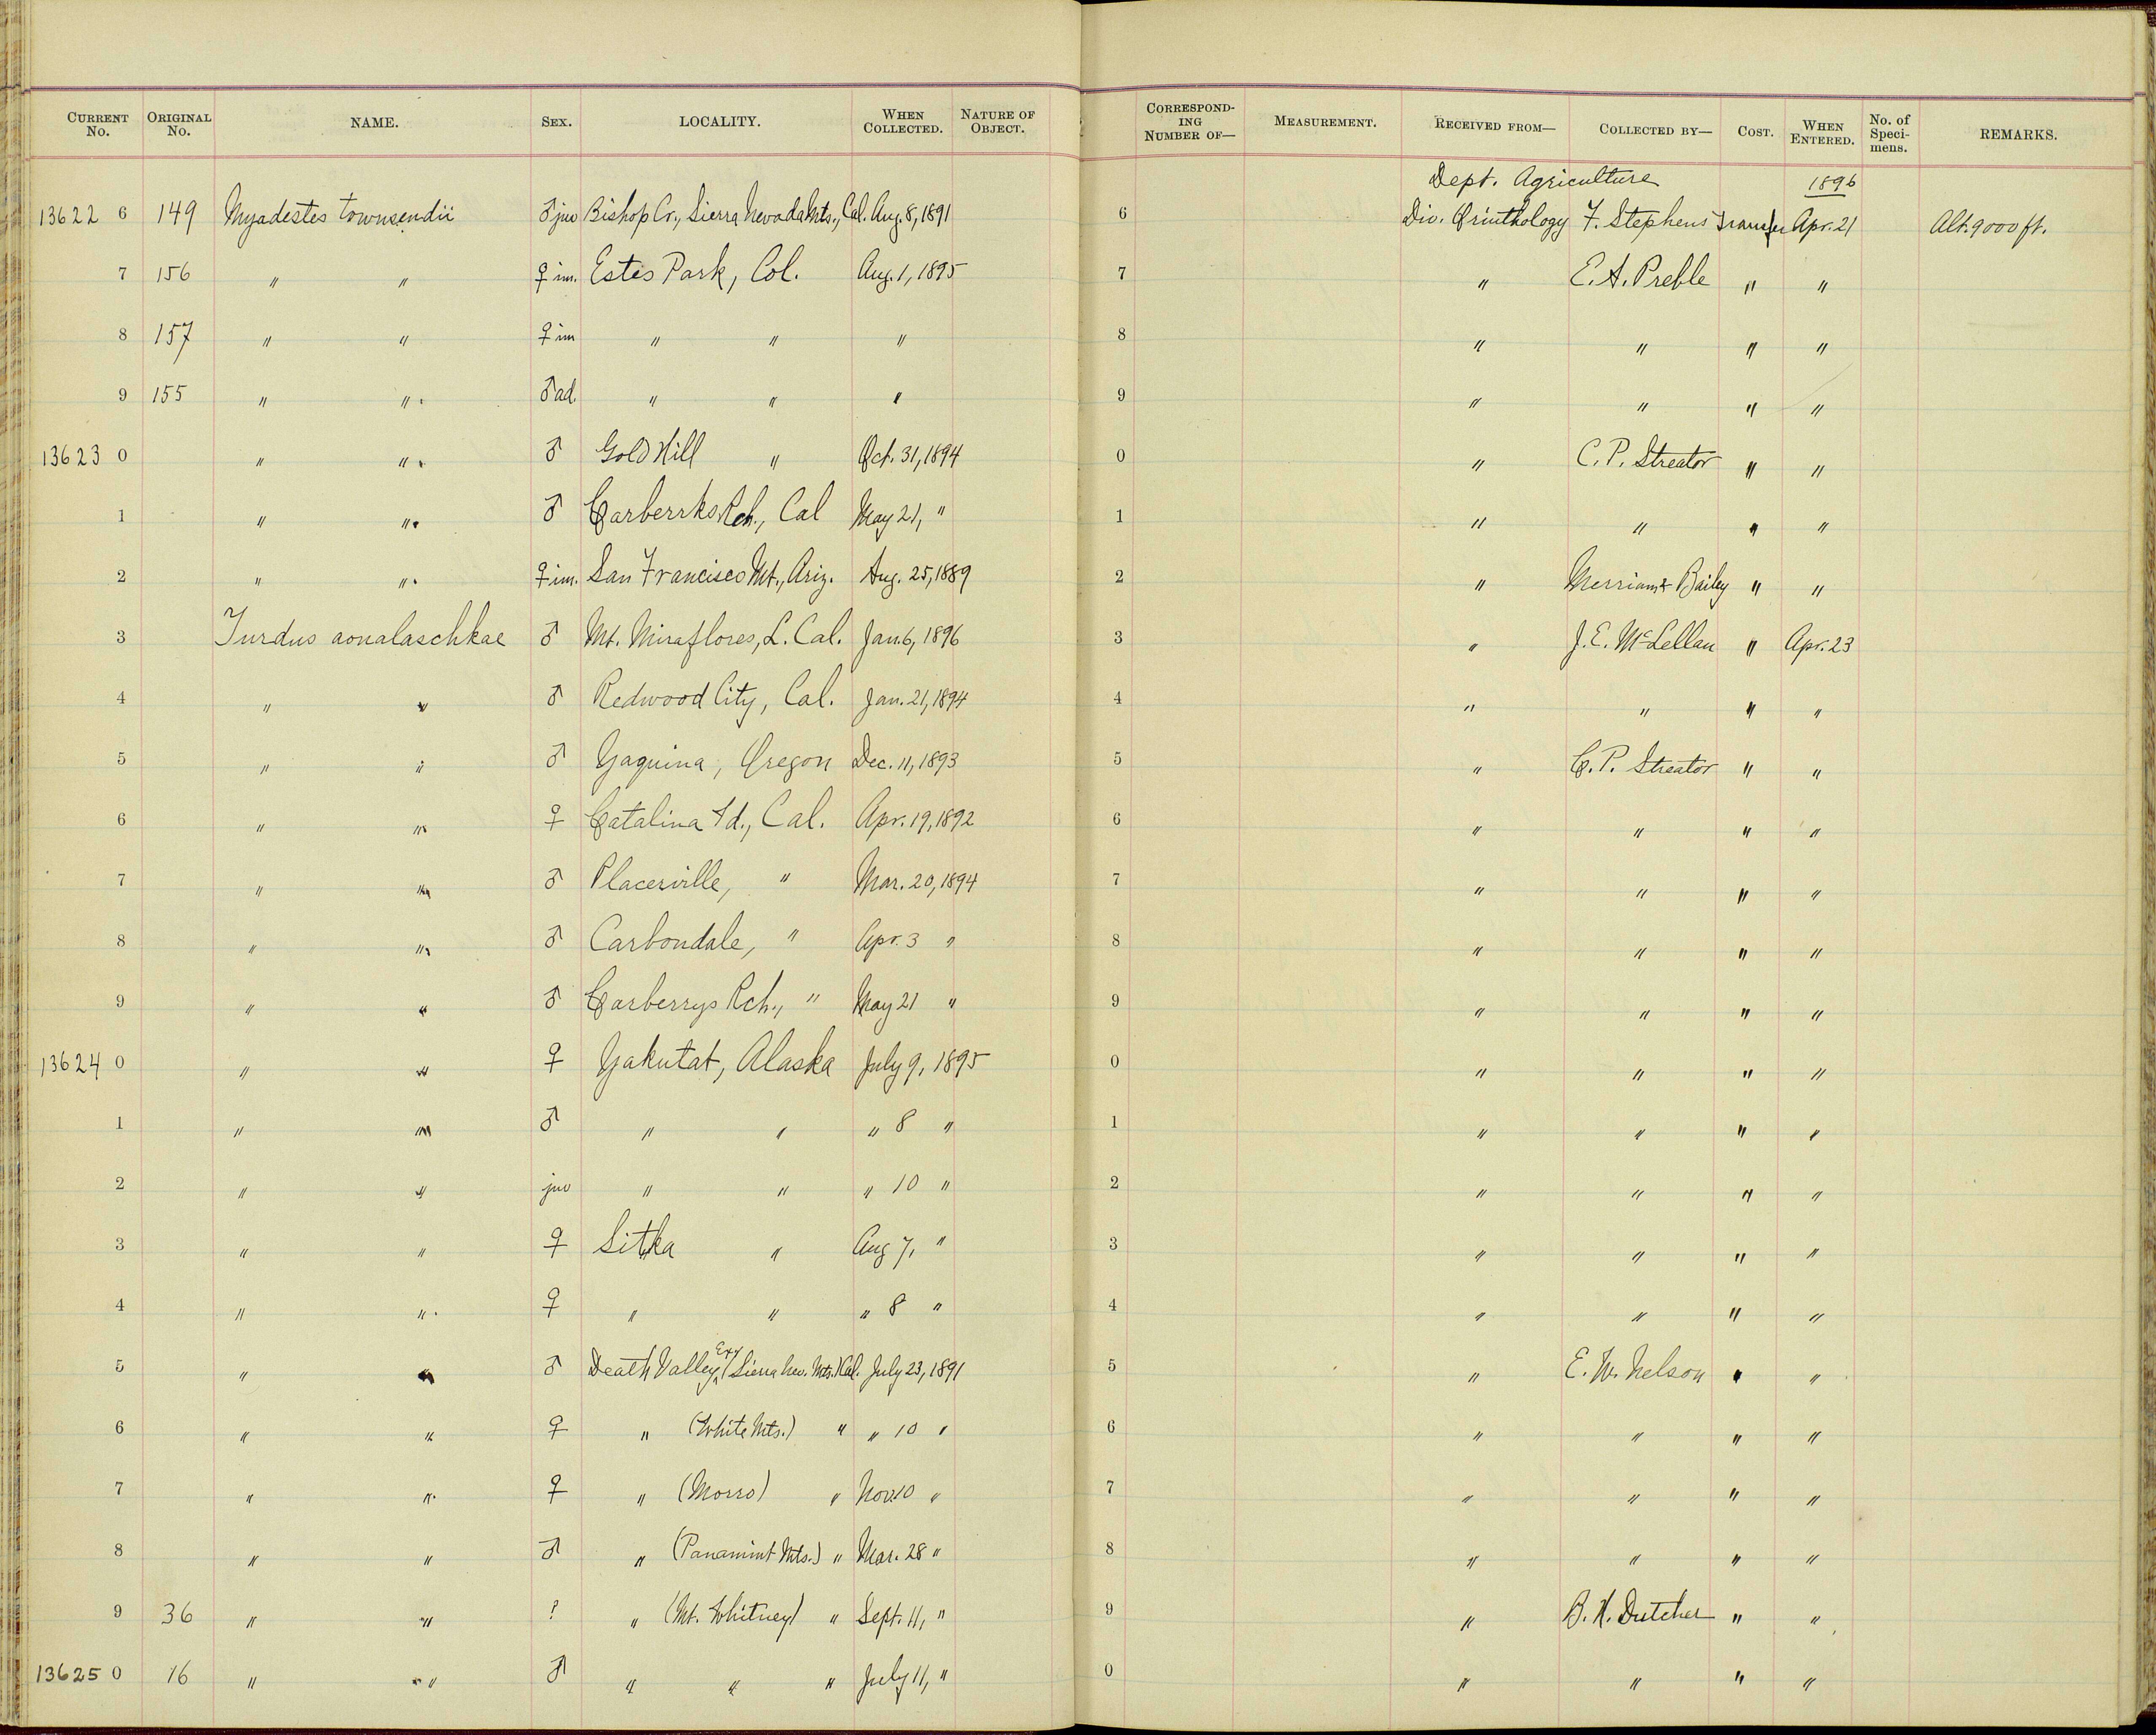 CURRENT No. ORIGINAL No. NAME. SEX. LOCALITY. WHEN COLLECTED. NATURE OF OBJECT. CORRESPONDING NUMBER OF— MEASUREMENT. RECEIVED FROM— COLLECTED BY— COST. WHEN ENTERED. No. of Specimens. REMARKS.
Dept. Agriculture 1896
13622 6 149 Myadestes townsendii ♂ juv Bishop Cr., Sierra Nevada Mts., Cal. Aug. 8, 1891 6 Div. Orinthology F. Stephens Transfer Apr. 21 Alt. 9000 ft.
7 156 " " ♀ im. Estes Park, Col. Aug. 1, 1895 7 " E. A. Preble " "
8 157 " " ♀ im " " " 8 " " " "
9 155 " " ♂ ad. " " " 9 " " " "
13623 0 " " ♂ Gold Hill " Oct. 31, 1894 0 " C. P. Streator " "
1 " " ♂ Carberrks Rch., Cal May 21, " 1 " " " "
2 " " ♀ im. San Francisco Mt., Ariz. Aug. 25, 1889 2 " Merriam & Bailey " "
3 Turdus aonalaschkae ♂ Mt. Miraflores, L. Cal. Jan. 6, 1896 3 " J. E. McLellan " Apr. 23
4 " " ♂ Redwood City, Cal. Jan. 21, 1894 4 " " " "
5 " " ♂ Yaquina, Oregon Dec. 11, 1893 5 " C. P. Streator " "
6 " " ♀ Catalina Id., Cal. Apr. 19, 1892 6 " " " "
7 " " ♂ Placerville, " Mar. 20, 1894 7 " " " "
8 " " ♂ Carbondale, " Apr. 3 " 8 " " " "
9 " " ♂ Carberrys Rch., " May 21 " 9 " " " "
13624 0 " " ♀ Yakutat, Alaska July 9, 1895 0 " " " "
1 " " ♂ " " " 8 " 1 " " " "
2 " " juv " " " 10 " 2 " " " "
3 " " ♀ Sitka " Aug 7, " 3 " " " "
4 " " ♀ " " " 8 " 4 " " " "
5 " " ♂ Death Valley Exp (Sierra Nev. Mts.) Cal. July 23, 1891 5 " E. W. Nelson " "
6 " " ♀ " (White Mts.) " " 10 " 6 " " " "
7 " " ♀ " (Morro) " Nov. 10 " 7 " " " "
8 " " ♂ " (Panamint Mts.) " Mar. 28 " 8 " " " "
9 36 " " ? " (Mt. Whitney) " Sept. 11, " 9 " B. H. Dutcher " "
13625 0 16 " " ♂ " " " July 11, " 0 " " " "